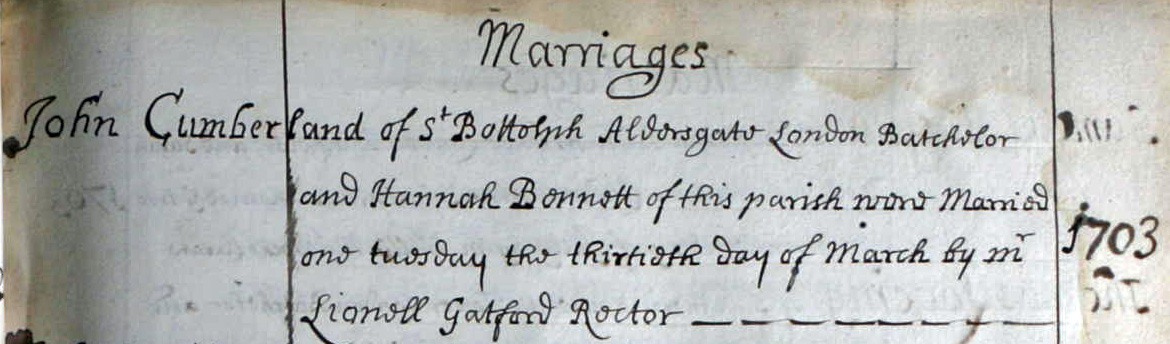 Marriages
John Cumberland of St Bottolph Aldersgate London Batchelor
and Hannah Bennett of this parish were Married
one tuesday the thirtieth day of March by mr
Lionell Gatford Rector
1703